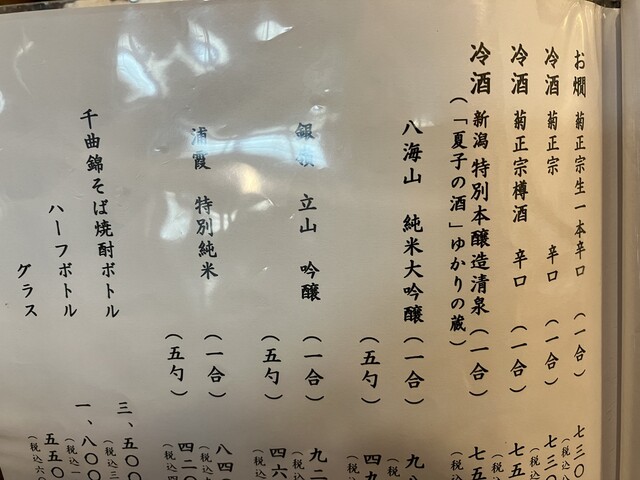 お燗 菊正宗生一本辛口 (一合) 七三〇
冷酒 菊正宗 辛口 (一合) 七三〇
(税込
冷酒 菊正宗樽酒 辛口 (一合) 七五
(税込
冷酒 新潟 特別本醸造清泉 (一合) 七五
(「夏子の酒」ゆかりの蔵) (税
八海山 純米大吟醸 (一合) 九八
(五勺) 四九
(税込
銀嶺 立山 吟醸 (一合) 九二
(税込
(五勺) 四六
(税込
浦霞 特別純米 (一合) 八四〇
(税込
(五勺) 四二〇
(税込
千曲錦そば焼酎ボトル 三、五〇〇
(税込三
ハーフボトル 一、八〇〇
(税込一
グラス 五五〇
(税込六〇